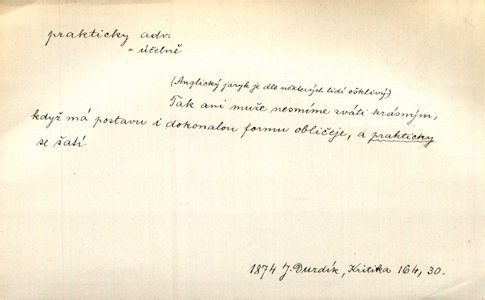 prakticky adv.
= účelně
(Anglický jazyk je dle některých lidí ošklivý)
Tak ani muže nesmíme zváti krásným,
když má postavu i dokonalou formu obličeje, a prakticky
se šatí.
1874 J. Durdík, Kritika 164, 30.